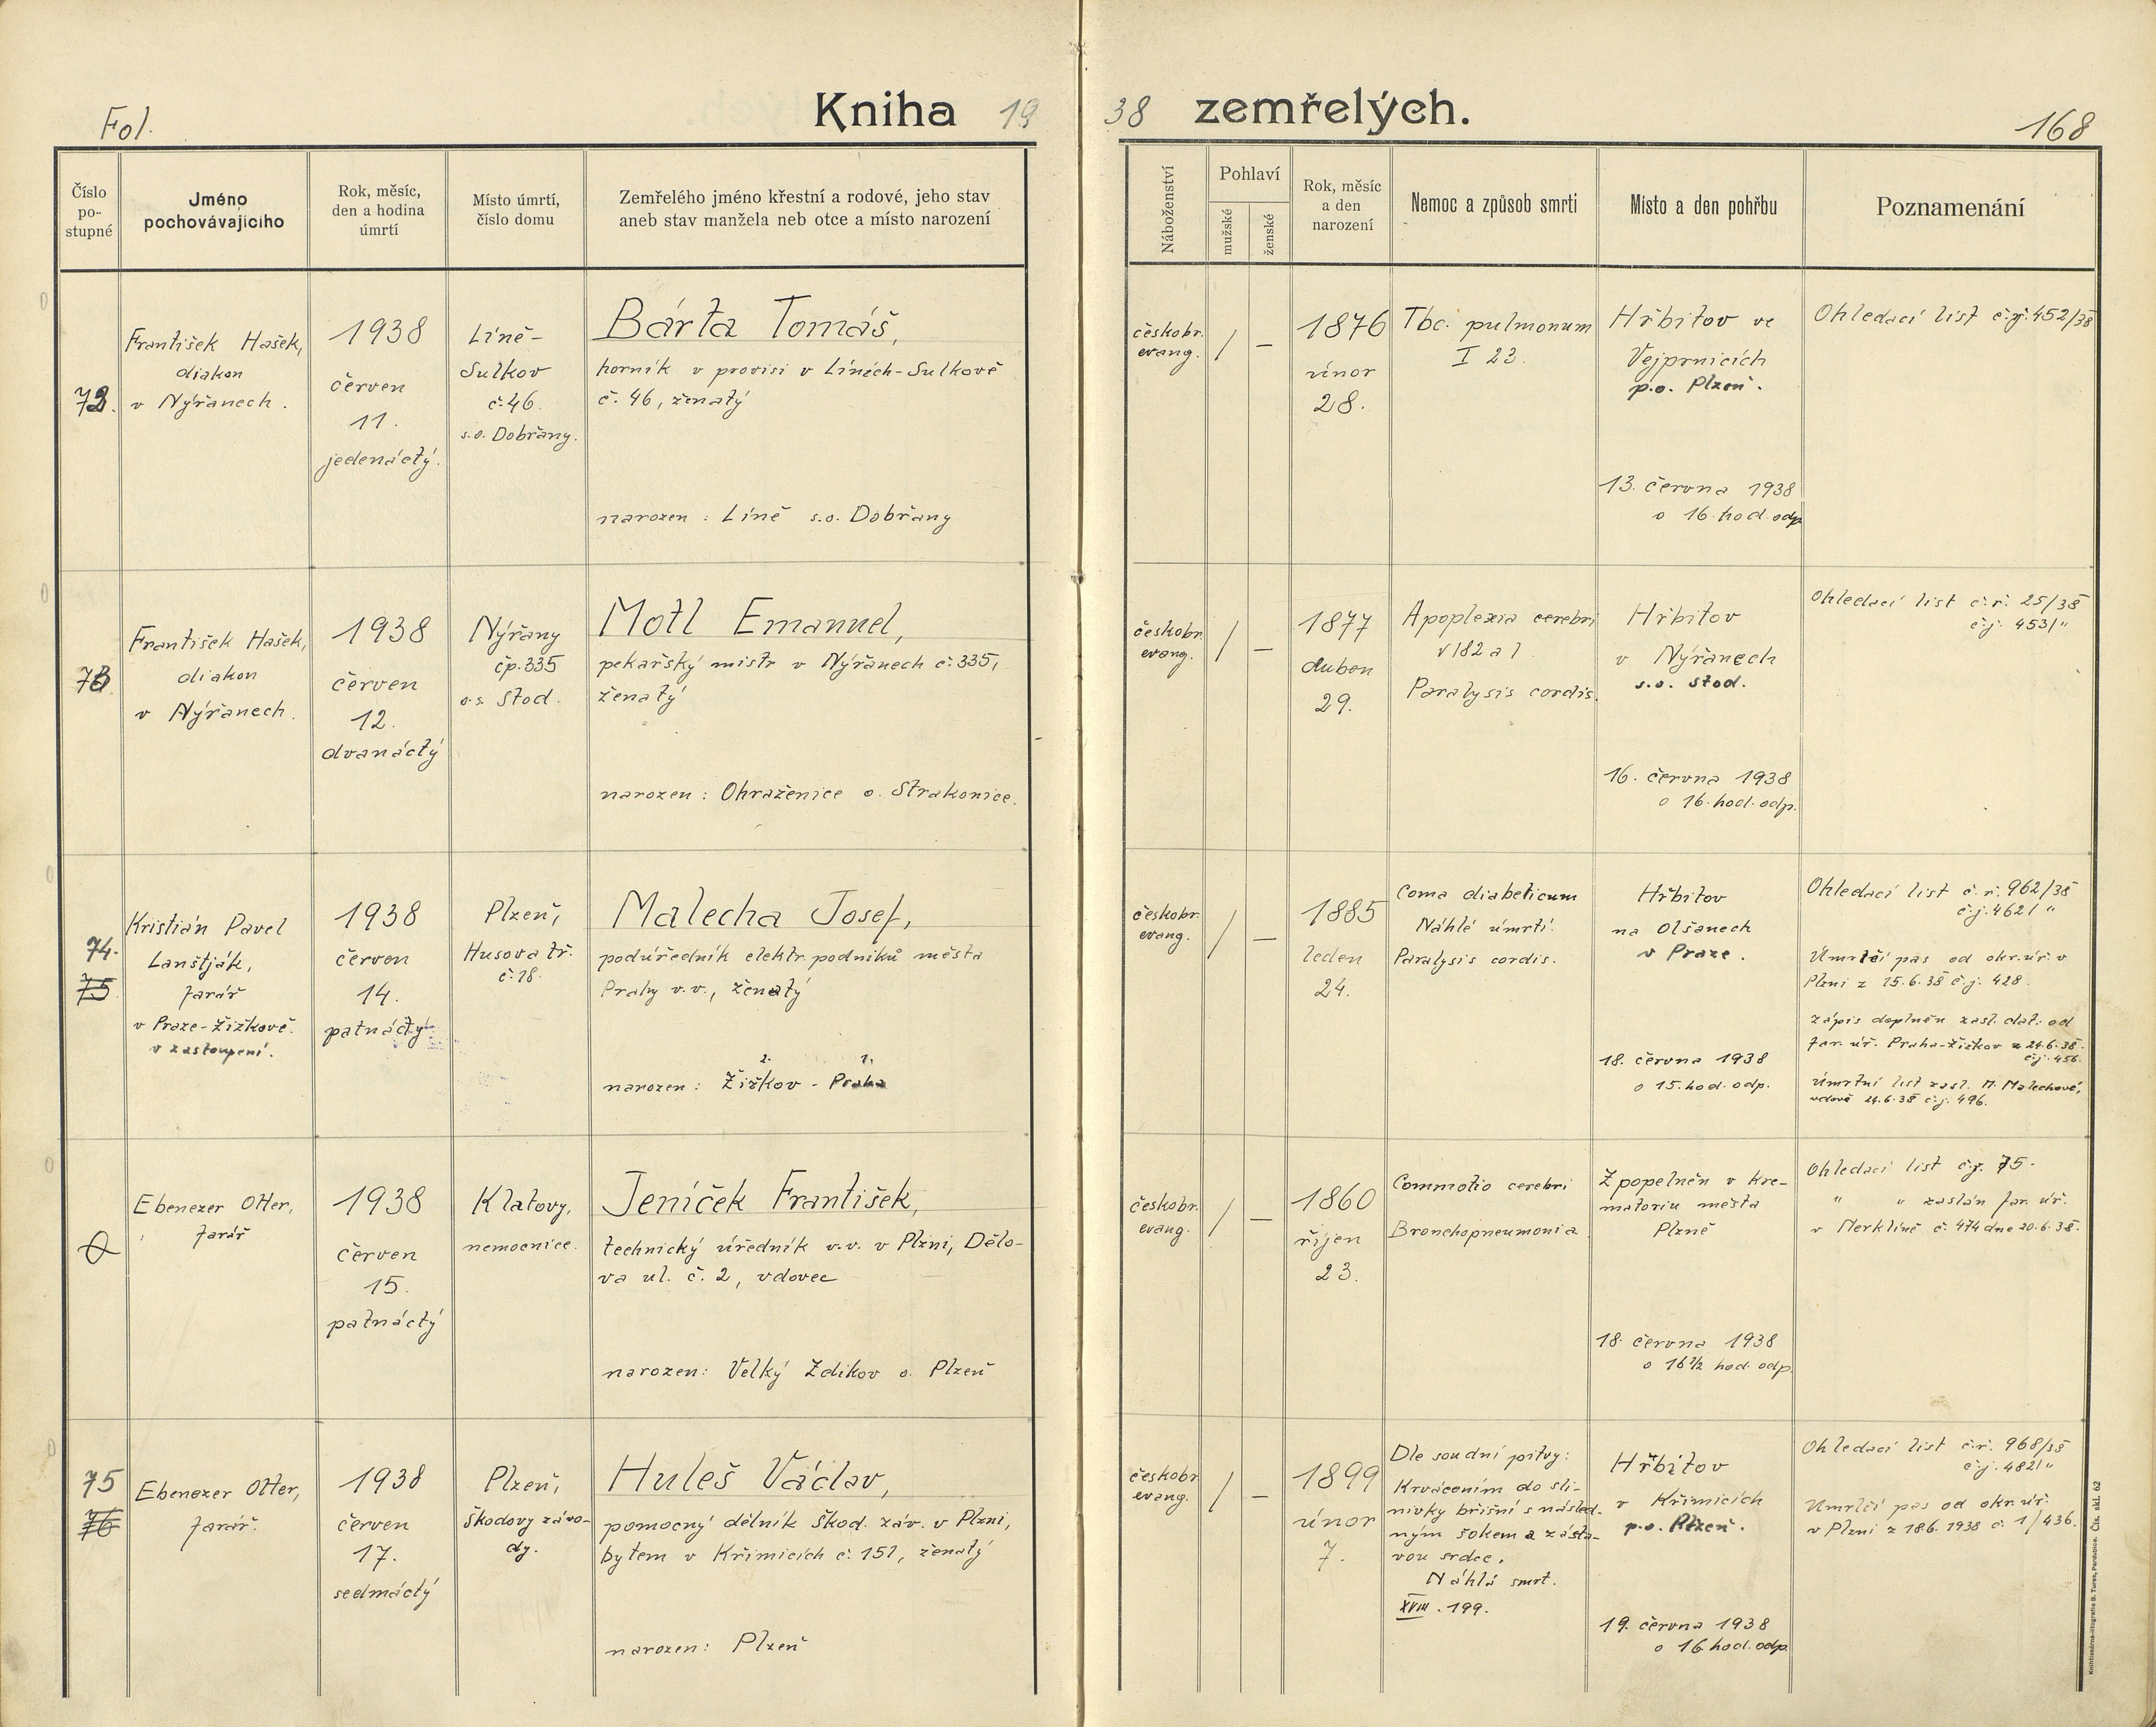 Fol.
Kniha 19
38 zemřelých.
168
Číslo
po-
stupné
Jméno
pochovávajícího
Rok, měsíc,
den a hodina
úmrtí
Místo úmrtí,
číslo domu
Zemřelého jméno křestní a rodové, jeho stav
aneb stav manžela neb otce a místo narození
Náboženství
Pohlaví
mužské
ženské
Rok, měsíc
a den
narození
Nemoc a způsob smrti
Místo a den pohřbu
Poznamenání
72.
František Hašek,
diakon
v Nýřanech.
1938
červen
11.
jedenáctý.
Líně-
Sulkov
č. 46.
s.o. Dobřany.
Bárta Tomáš,
horník v provisi v Líních-Sulkově
č. 46, ženatý
narozen: Líně s.o. Dobřany
českobr.
evang.
/
–
1876
únor
28.
Tbc. pulmonum
I 23.
Hřbitov ve
Vejprnicích
p.o. Plzeň.
13. června 1938
o 16. hod. odp.
Ohledací list č.j. 452/38
73
František Hašek,
diakon
v Nýřanech.
1938
červen
12.
dvanáctý
Nýřany
čp. 335
o.s. Stod.
Motl Emanuel,
pekařský mistr v Nýřanech č. 335,
ženatý
narozen: Ohraženice o. Strakonice.
českobr.
evang.
/
–
1877
duben
29.
Apoplexia cerebri
V 182 a 1
Paralysis cordis.
Hřbitov
v Nýřanech
s.o. Stod.
16. června 1938
o 16. hod. odp.
Ohledací list č.ř. 25/38
č.j. 453/"
74.
75.
Kristián Pavel
Lanštják,
farář
v Praze-Žižkově.
v zastoupení.
1938
červen
14.
patnáctý
Plzeň,
Husova tř.
č. 18.
Malecha Josef,
podúředník elektr. podniků města
Prahy v.v., ženatý
2. 1.
narozen: Žižkov - Praha
českobr.
evang.
/
–
1885
leden
24.
Coma diabeticum
Náhlé úmrtí.
Paralysis cordis.
Hřbitov
na Olšanech
v Praze.
18. června 1938
o 15. hod. odp.
Ohledací list č.ř. 962/38
č.j. 462/"
Úmrlčí pas od okr. úř. v
Plzni z 15.6.38 č.j. 428.
Zápis doplněn zasl. dat. od
far. úř. Praha-Žižkov z 24.6.38.
č.j. 456.
Úmrtní list zasl. M. Malechové,
vdově 24.6.38 č.j. 496.
Ebenezer Otter,
farář
1938
červen
15.
patnáctý
Klatovy,
nemocnice.
Jeníček František,
technický úředník v.v. v Plzni, Dělo-
va ul. č. 2, vdovec
narozen: Velký Zdikov o. Plzeň
českobr.
evang.
/
–
1860
říjen
23.
Commotio cerebri
Bronchopneumonia
Zpopelněn v kre-
matoriu města
Plzně
18. června 1938
o 16 1/2 hod. odp.
Ohledací list č.j. 75.
" " zaslán far. úř.
v Merklíně č. 474 dne 20.6.38.
75
76
Ebenezer Otter,
farář.
1938
červen
17.
sedmáctý
Plzeň,
Škodovy závo-
dy.
Huleš Václav,
pomocný dělník Škod. záv. v Plzni,
bytem v Křimicích č. 151, ženatý
narozen: Plzeň
českobr.
evang.
/
–
1899
únor
7.
Dle soudní pitvy:
Krvácením do sli-
nivky břišní s násled-
ným šokem a zásta-
vou srdce.
Náhlá smrt.
XVIII. 199.
Hřbitov
v Křimicích
p.o. Plzeň.
19. června 1938
o 16. hod. odp.
Ohledací list č.ř. 968/38
č.j. 482/"
Úmrlčí pas od okr. úř.
v Plzni z 18.6.1938 č. 1/436.
Knihtiskárna-litografie B. Turza, Pardubice. Čís. skl. 62